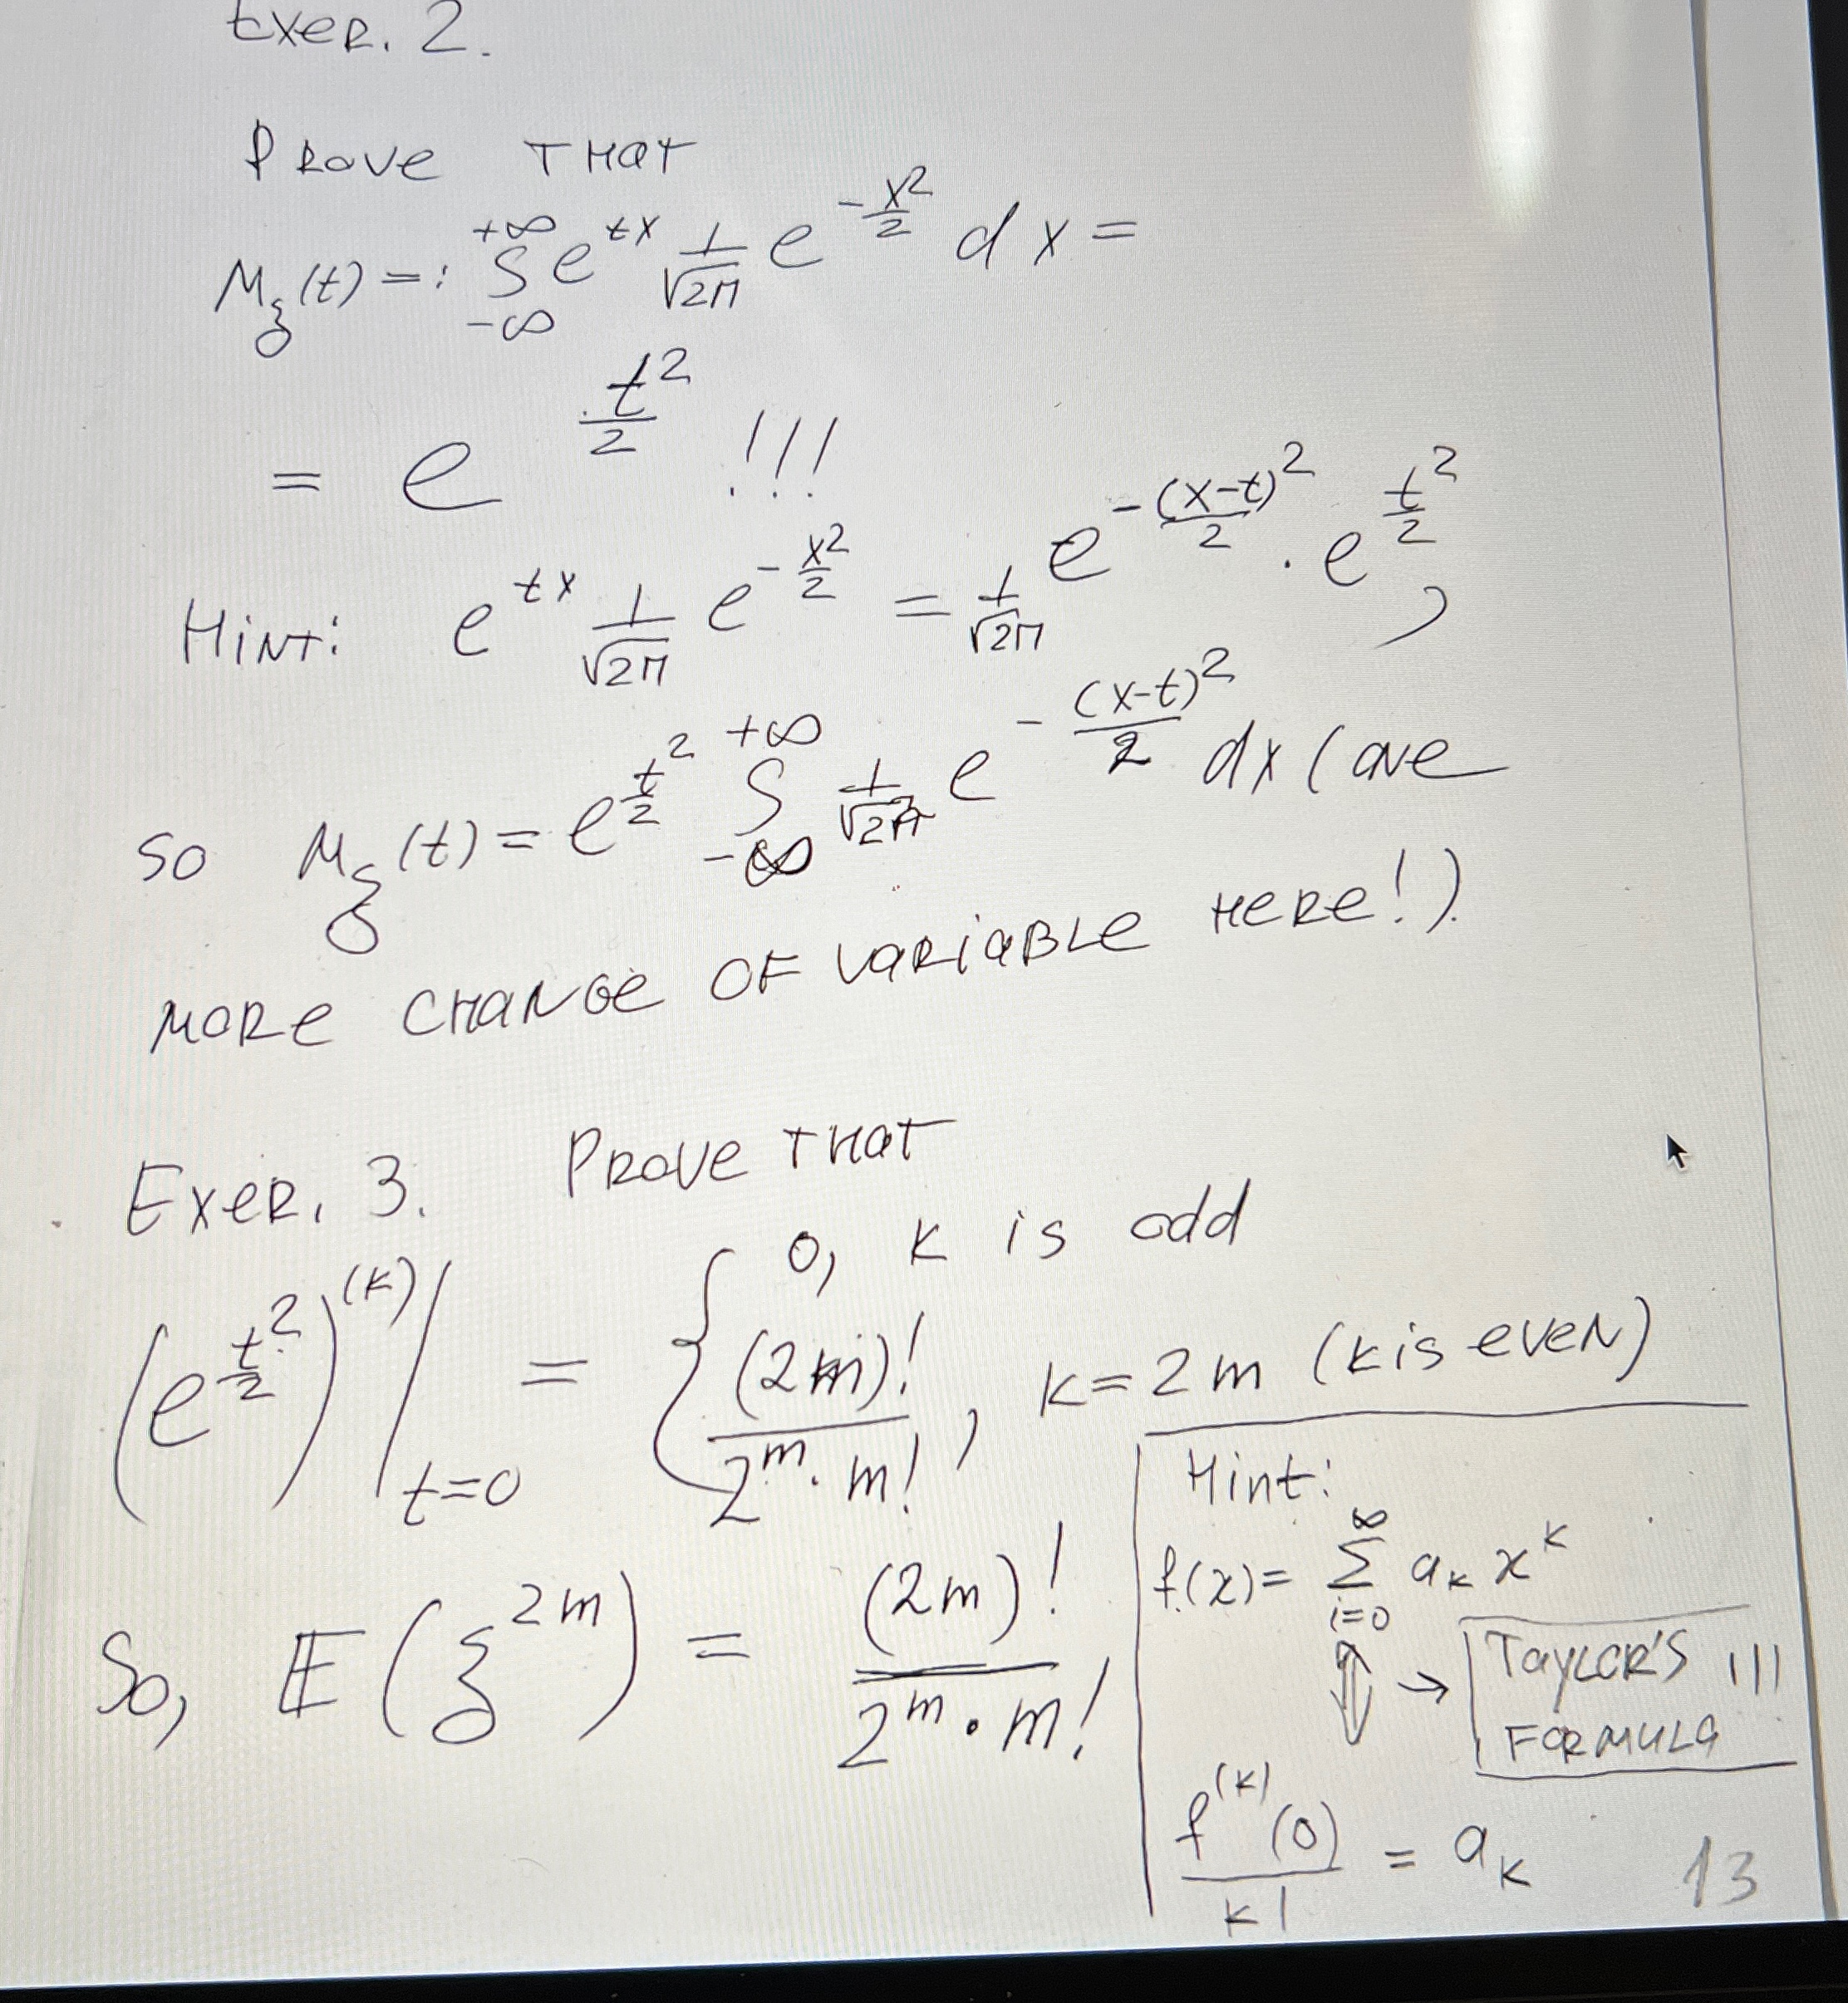 Exer. 2.
Prove that
M_ξ(t) =: ∫_{-∞}^{+∞} e^{tx} \frac{1}{√2π} e^{-\frac{x^2}{2}} dx =
= e^{\frac{t^2}{2}} !!!
Hint: e^{tx} \frac{1}{√2π} e^{-\frac{x^2}{2}} = \frac{1}{√2π} e^{-\frac{(x-t)^2}{2}} · e^{\frac{t^2}{2}},
so M_ξ(t) = e^{\frac{t^2}{2}} ∫_{-∞}^{+∞} \frac{1}{√2π} e^{-\frac{(x-t)^2}{2}} dx (one
more change of variable here!).
Exer. 3. Prove that
(e^{\frac{t^2}{2}})^{(k)} |_{t=0} = { 0, k is odd
\frac{(2m)!}{2^m · m!}, k = 2m (k is even)
So, 𝔼(ξ^{2m}) = \frac{(2m)!}{2^m · m!}
Hint:
f(x) = ∑_{i=0}^{∞} a_k x^k
⇕ → Taylor's !!!
Formula
\frac{f^{(k)}(0)}{k!} = a_k
13